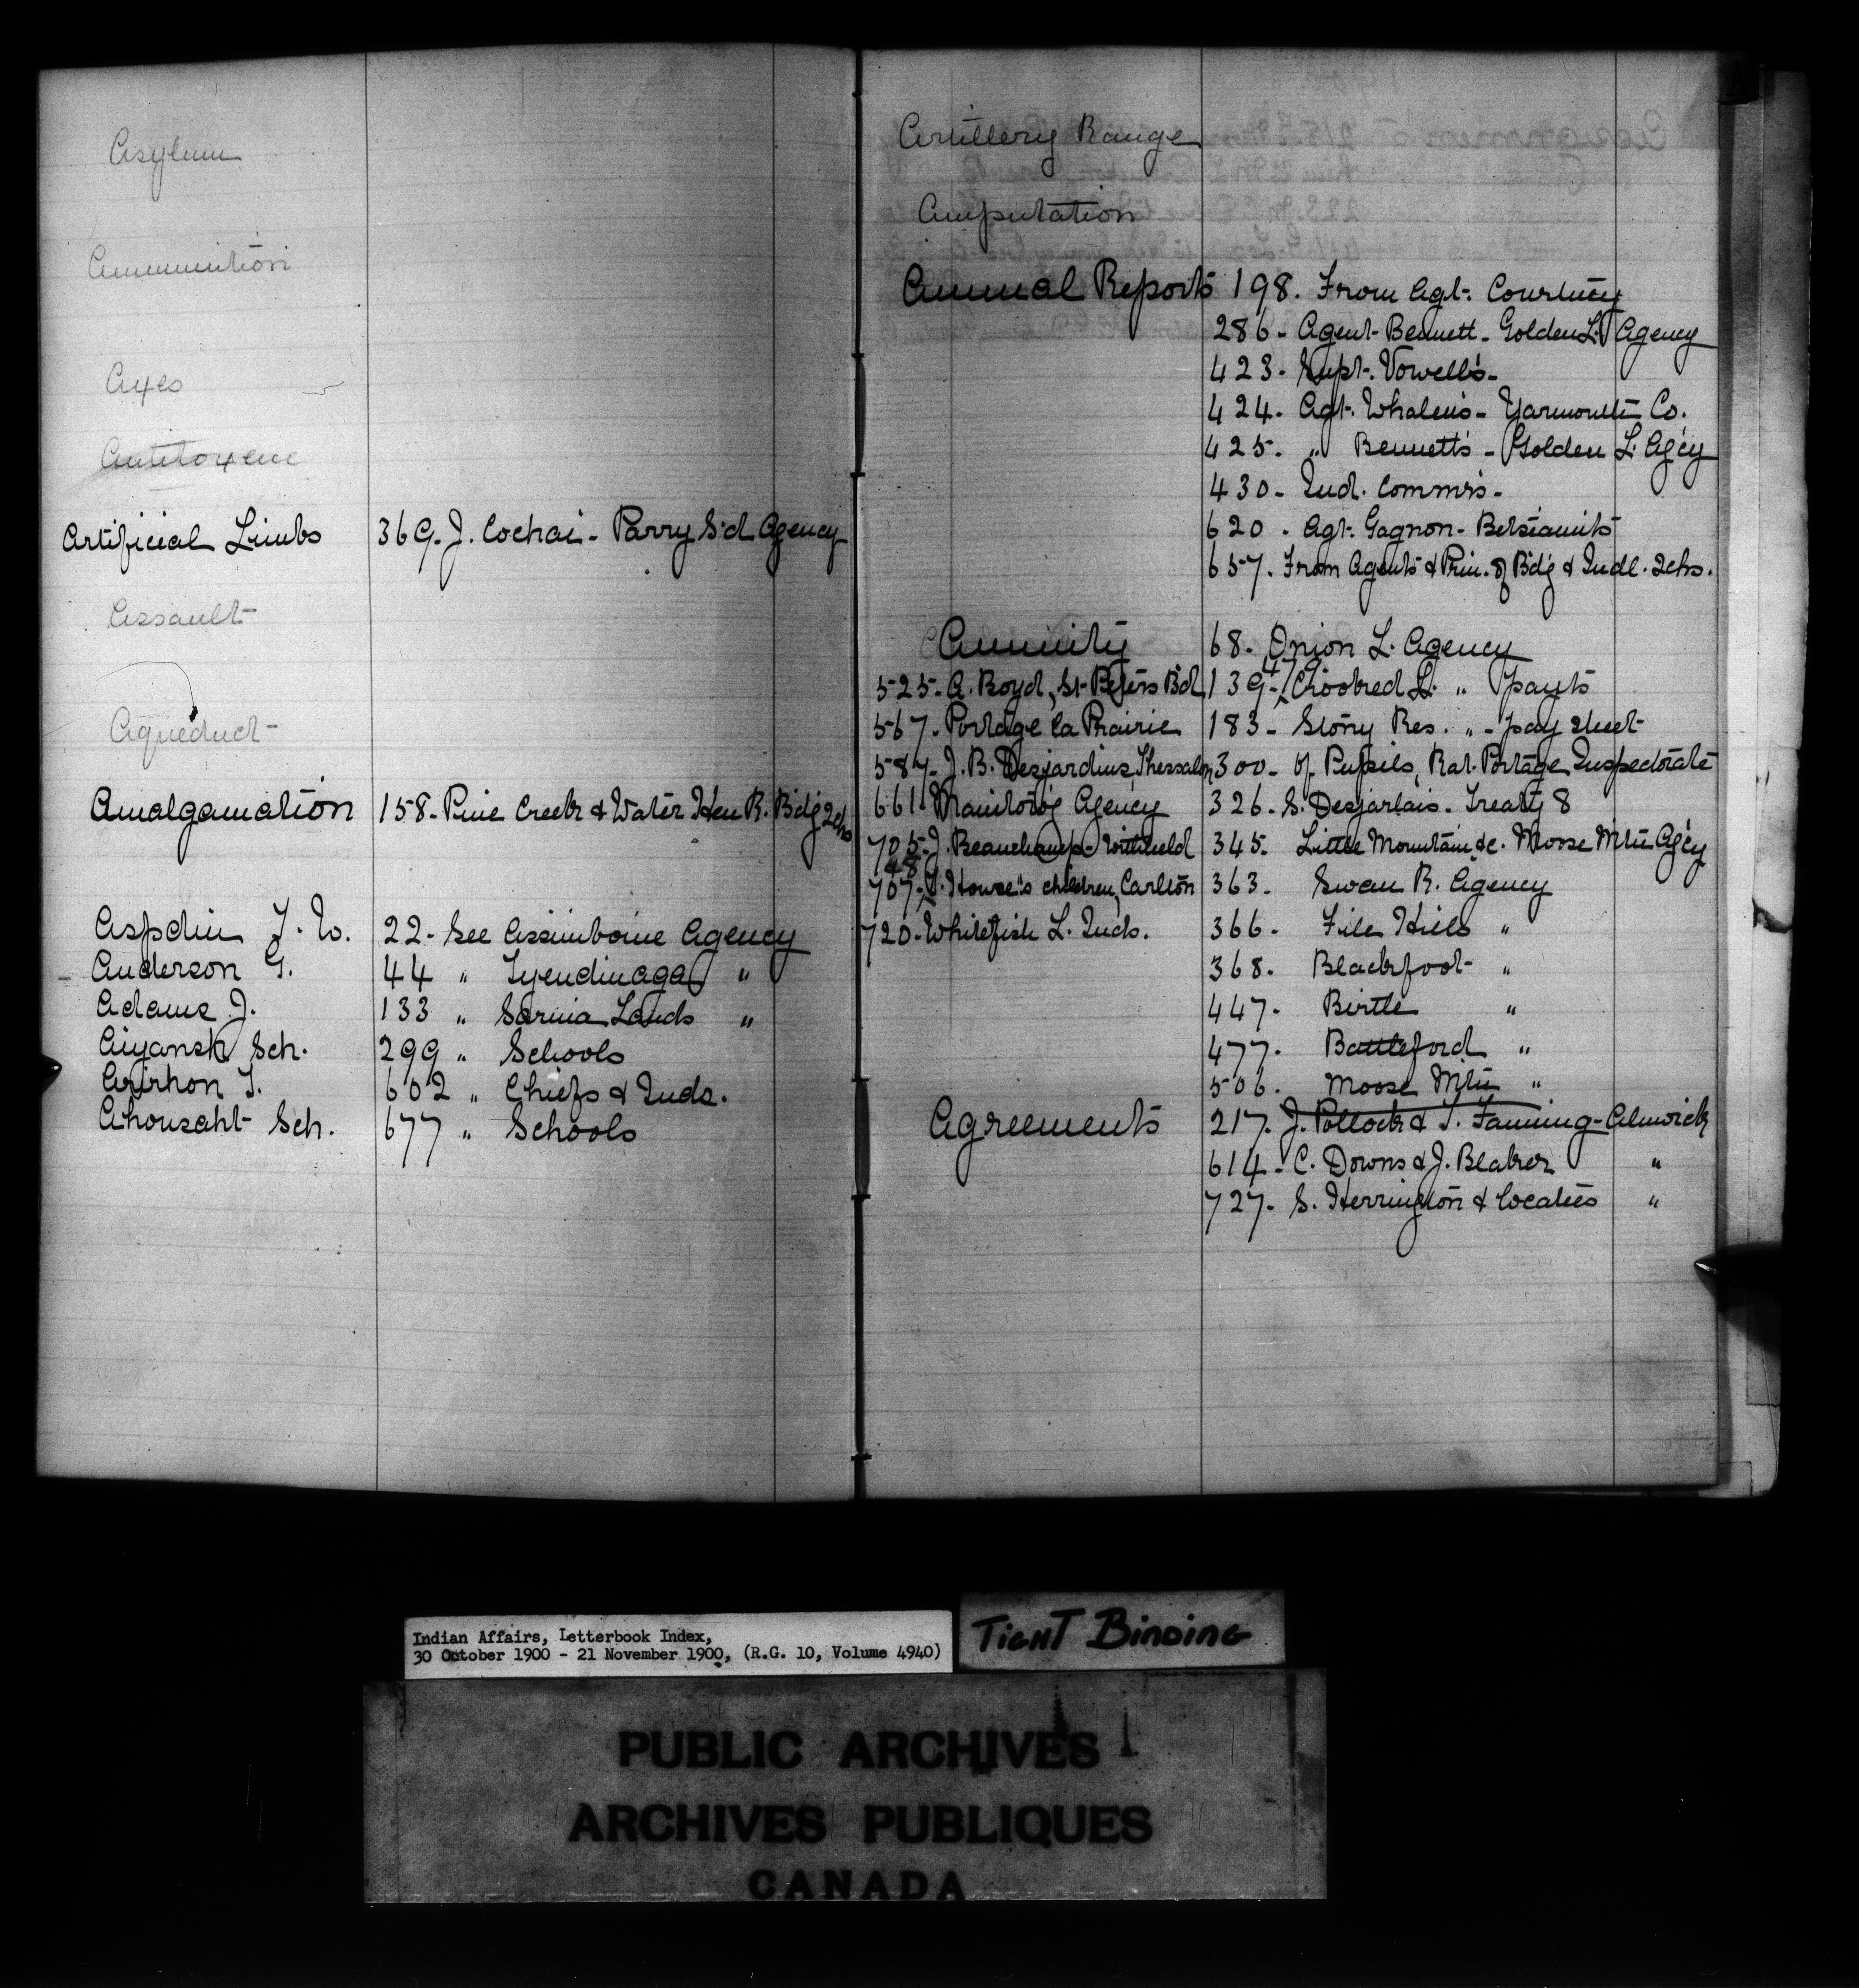 Asylum
Ammunition
Axes
Antitoxene
Artificial Limbs 369. J. Cochai - Parry S'd Agency
Assault
Aqueduct
Amalgamation 158- Pine Creek & Water Hen R. Bdg Schs
Aspdin T. W. 22- See Assiniboine Agency
Anderson G. 44 " Tyendinaga "
Adams J. 133 " Sarnia Lands "
Aiyansh Sch. 299 " Schools
Arirhon T. 602 " Chiefs & Inds.
Ahousaht Sch. 677 " Schools
Artillery Range
Amputation
Annual Reports 198. From Agt. Courtney
286- Agent Bennett - Golden L. Agency
423- Supt. Vowell's-
424- Agt. Whalen's - Yarmouth Co.
425- " Bennett's - Golden L. Ag'cy
430- Ind. Commr's-
620. Agt. Gagnon- Betsiamits
657. From Agents & Prin. of Bdg & Indl. Schs.
Annuity 68- Onion L. Agency
525- A. Boyd, St Peters Bd 139-47 Crooked L. " payts
567- Portage la Prairie 183- Stony Res. " - pay sheet
587- J. B. Desjardins Thessalon 300- of Pupils, Rat. Portage Inspectorate
661- Manitowog Agency 326- S. Desjarlais- Treaty 8
705- J. Beauchamp- withheld 345- Little Mountain &c. Moose Mtn Ag'cy
707-48 J. Howse's children, Carlton 363- Swan R. Agency
720- Whitefish L. Inds. 366- File Hills "
368- Blackfoot "
447- Birtle "
477- Battleford "
506. Moose Mtn "
Agreements 217. J. Pollock & T. Fanning- Alnwick
614- C. Downs & J. Blaker "
727- S. Herrington & locatees "
Indian Affairs, Letterbook Index,
30 October 1900 - 21 November 1900, (R.G. 10, Volume 4940)
TIGHT BINDING
PUBLIC ARCHIVES
ARCHIVES PUBLIQUES
CANADA